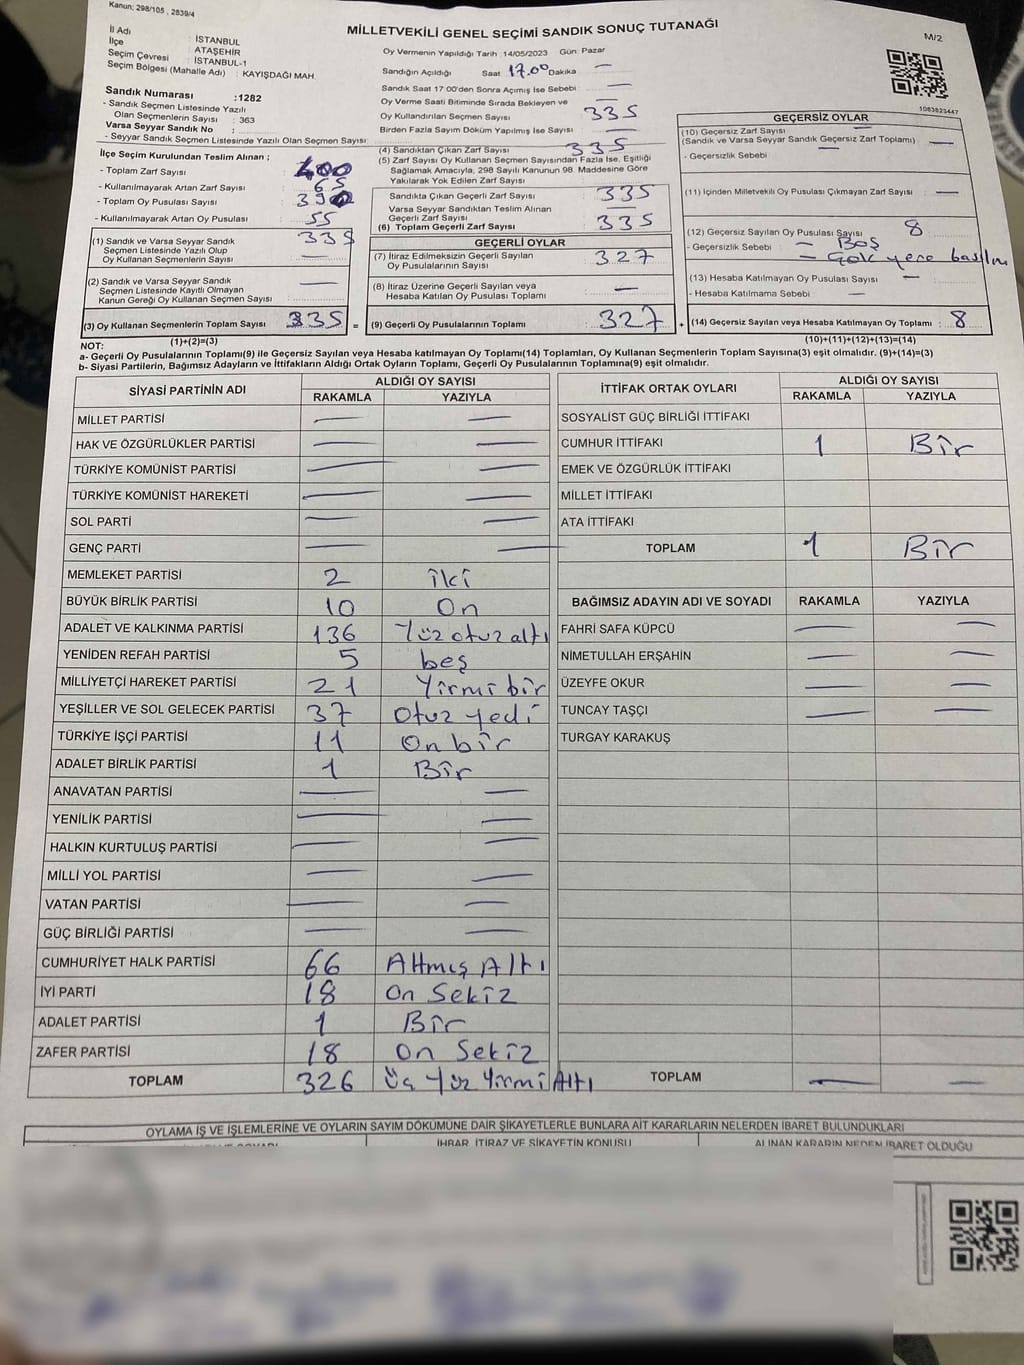 Kanun; 298/105 , 2839/4
MİLLETVEKİLİ GENEL SEÇİMİ SANDIK SONUÇ TUTANAĞI
M/2
İl Adı : İSTANBUL
İlçe : ATAŞEHİR
Seçim Çevresi : İSTANBUL-1
Seçim Bölgesi (Mahalle Adı) : KAYIŞDAĞI MAH.
Sandık Numarası :1282
- Sandık Seçmen Listesinde Yazılı
Olan Seçmen Sayısı : 363
Varsa Seyyar Sandık No :
- Seyyar Sandık Seçmen Listesinde Yazılı Olan Seçmen Sayısı :
İlçe Seçim Kurulundan Teslim Alınan ;
- Toplam Zarf Sayısı : 400
- Kullanılmayarak Artan Zarf Sayısı : 65
- Toplam Oy Pusulası Sayısı : 390
- Kullanılmayarak Artan Oy Pusulası : 55
(1) Sandık ve Varsa Seyyar Sandık
Seçmen Listesinde Yazılı Olup
Oy Kullanan Seçmenlerin Sayısı : 335
(2) Sandık ve Varsa Seyyar Sandık
Seçmen Listesinde Kayıtlı Olmayan
Kanun Gereği Oy Kullanan Seçmen Sayısı : —
(3) Oy Kullanan Seçmenlerin Toplam Sayısı : 335 =
Oy Vermenin Yapıldığı Tarih : 14/05/2023 Gün: Pazar
Sandığın Açıldığı Saat 17.00 Dakika —
Sandık Saat 17:00'den Sonra Açımış İse Sebebi : —
Oy Verme Saati Bitiminde Sırada Bekleyen ve
Oy Kullandırılan Seçmen Sayısı : 335
Birden Fazla Sayım Döküm Yapılmış İse Sayısı : —
(4) Sandıktan Çıkan Zarf Sayısı : 335
(5) Zarf Sayısı Oy Kullanan Seçmen Sayısından Fazla İse, Eşitliği
Sağlamak Amacıyla, 298 Sayılı Kanunun 98. Maddesine Göre
Yakılarak Yok Edilen Zarf Sayısı :
Sandıkta Çıkan Geçerli Zarf Sayısı : 335
Varsa Seyyar Sandıktan Teslim Alınan
Geçerli Zarf Sayısı : —
(6) Toplam Geçerli Zarf Sayısı : 335
GEÇERLİ OYLAR
(7) İtiraz Edilmeksizin Geçerli Sayılan
Oy Pusulalarının Sayısı : 327
(8) İtiraz Üzerine Geçerli Sayılan veya
Hesaba Katılan Oy Pusulası Toplamı : —
(9) Geçerli Oy Pusulalarının Toplamı : 327 +
1083823447
GEÇERSİZ OYLAR
(10) Geçersiz Zarf Sayısı
(Sandık ve Varsa Seyyar Sandık Geçersiz Zarf Toplamı) : —
- Geçersizlik Sebebi : —
(11) İçinden Milletvekili Oy Pusulası Çıkmayan Zarf Sayısı : —
(12) Geçersiz Sayılan Oy Pusulası Sayısı : 8
- Geçersizlik Sebebi : — Boş
— Çok yere basılmı
(13) Hesaba Katılmayan Oy Pusulası Sayısı : —
- Hesaba Katılmama Sebebi : —
(14) Geçersiz Sayılan veya Hesaba Katılmayan Oy Toplamı : 8
NOT: (1)+(2)=(3) (10)+(11)+(12)+(13)=(14)
a- Geçerli Oy Pusulalarının Toplamı(9) ile Geçersiz Sayılan veya Hesaba katılmayan Oy Toplamı(14) Toplamları, Oy Kullanan Seçmenlerin Toplam Sayısına(3) eşit olmalıdır. (9)+(14)=(3)
b- Siyasi Partilerin, Bağımsız Adayların ve İttifakların Aldığı Ortak Oyların Toplamı, Geçerli Oy Pusulalarının Toplamına(9) eşit olmalıdır.
SİYASİ PARTİNİN ADI ALDIĞI OY SAYISI
RAKAMLA YAZIYLA
MİLLET PARTİSİ — —
HAK VE ÖZGÜRLÜKLER PARTİSİ — —
TÜRKİYE KOMÜNİST PARTİSİ — —
TÜRKİYE KOMÜNİST HAREKETİ — —
SOL PARTİ — —
GENÇ PARTİ — —
MEMLEKET PARTİSİ 2 iki
BÜYÜK BİRLİK PARTİSİ 10 On
ADALET VE KALKINMA PARTİSİ 136 Yüz otuz altı
YENİDEN REFAH PARTİSİ 5 beş
MİLLİYETÇİ HAREKET PARTİSİ 21 Yirmi bir
YEŞİLLER VE SOL GELECEK PARTİSİ 37 Otuz yedi
TÜRKİYE İŞÇİ PARTİSİ 11 On bir
ADALET BİRLİK PARTİSİ 1 Bir
ANAVATAN PARTİSİ — —
YENİLİK PARTİSİ — —
HALKIN KURTULUŞ PARTİSİ — —
MİLLİ YOL PARTİSİ — —
VATAN PARTİSİ — —
GÜÇ BİRLİĞİ PARTİSİ — —
CUMHURİYET HALK PARTİSİ 66 Altmış Altı
İYİ PARTİ 18 On Sekiz
ADALET PARTİSİ 1 Bir
ZAFER PARTİSİ 18 On Sekiz
TOPLAM 326 Üç Yüz Yirmi Altı
İTTİFAK ORTAK OYLARI ALDIĞI OY SAYISI
RAKAMLA YAZIYLA
SOSYALİST GÜÇ BİRLİĞİ İTTİFAKI
CUMHUR İTTİFAKI 1 Bir
EMEK VE ÖZGÜRLÜK İTTİFAKI
MİLLET İTTİFAKI
ATA İTTİFAKI
TOPLAM 1 Bir
BAĞIMSIZ ADAYIN ADI VE SOYADI RAKAMLA YAZIYLA
FAHRİ SAFA KÜPCÜ — —
NİMETULLAH ERŞAHİN — —
ÜZEYFE OKUR — —
TUNCAY TAŞÇI — —
TURGAY KARAKUŞ
TOPLAM — —
OYLAMA İŞ VE İŞLEMLERİNE VE OYLARIN SAYIM DÖKÜMÜNE DAİR ŞİKAYETLERLE BUNLARA AİT KARARLARIN NELERDEN İBARET BULUNDUKLARI
İHBAR, İTİRAZ VE ŞİKAYETİN KONUSU ALINAN KARARIN NEDEN İBARET OLDUĞU